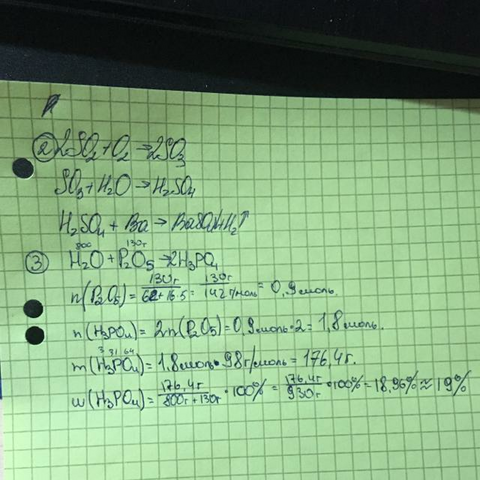 ② 2SO₂+O₂→2SO₃
SO₃+H₂O→H₂SO₄
H₂SO₄+Ba→BaSO₄↓+H₂↑
800 130г
③ H₂O+P₂O₅→2H₃PO₄
n(P₂O₅)=130г/62+16·5=130г/142г/моль=0,9моль.
n(H₃PO₄)=2n(P₂O₅)=0,9моль·2=1,8моль.
3 31 64
m(H₃PO₄)=1,8моль·98г/моль=176,4г.
w(H₃PO₄)=176,4г/800г+130г·100%=176,4г/930г·100%=18,96%≈19%